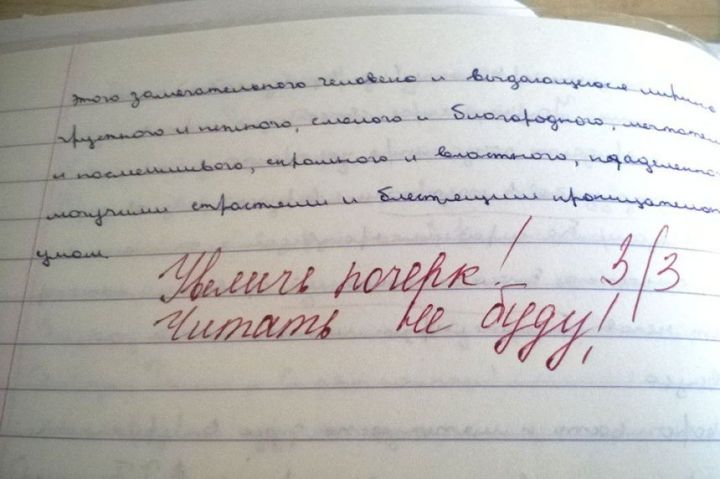 этого замечательного человека и выдающегося лирика
грустного и нежного, смелого и благородного, мечтател
и насмешливого, скромного и властного, наделенно
могучими страстями и блестящим проницательн
умом.
Увеличь почерк! 3/3
Читать не буду!